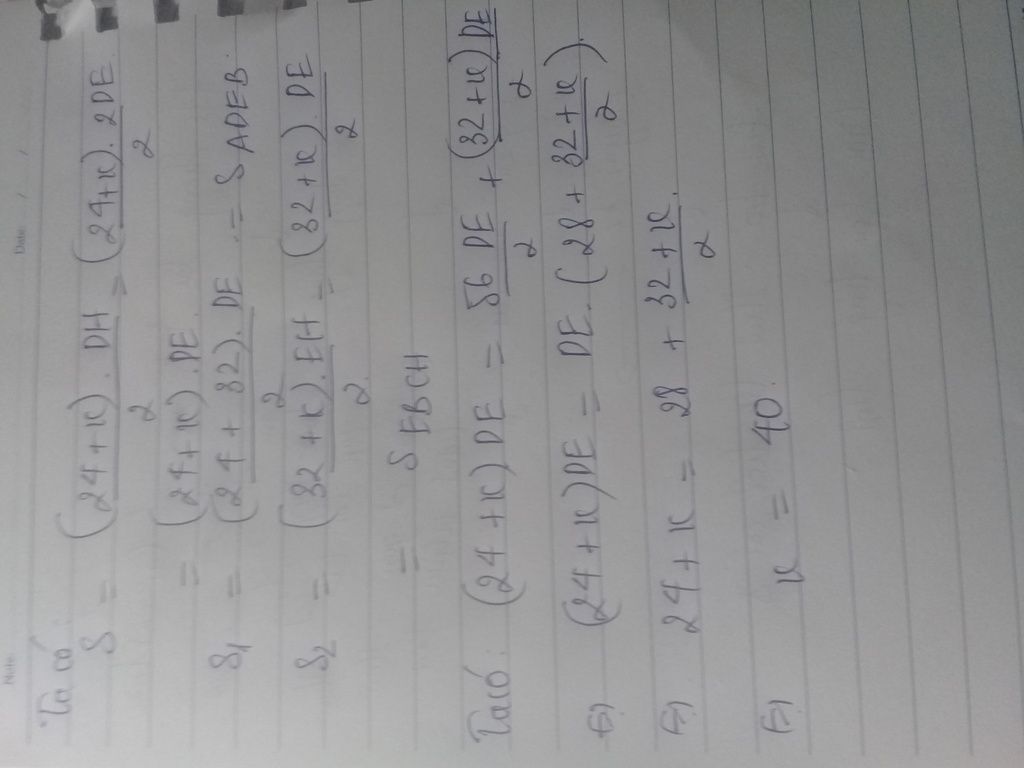 Note:
Date: / /
Ta có:
S = (24+x).DH/2 = (24+x).2DE/2
= (24+x).DE
S1 = (24+32).DE/2 = S ADEB.
S2 = (32+x).EH/2 = (32+x).DE/2
= S EBCH
Ta có: (24+x)DE = 56 DE/2 + (32+x)DE/2
⇔ (24+x)DE = DE.(28 + 32+x/2).
⇔ 24+x = 28 + 32+x/2.
⇔ x = 40.